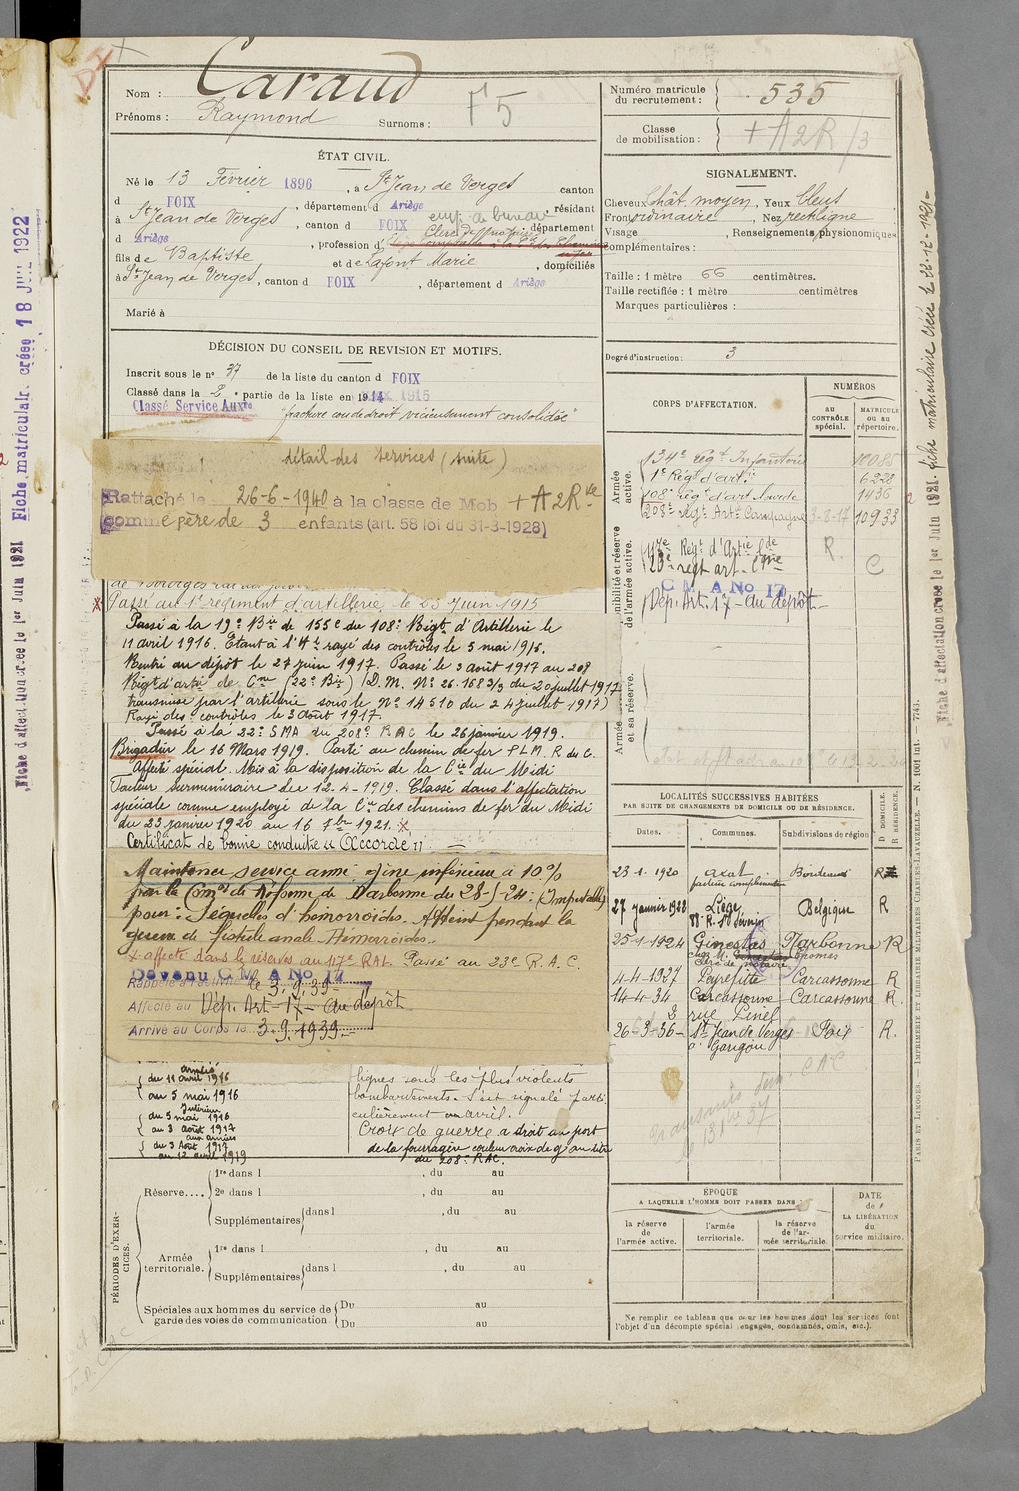 Nom : Caraud
Prénoms : Raymond Surnoms :
F5
ÉTAT CIVIL.
Né le 13 Février 1896, à St Jean de Verges canton
d FOIX, département d Ariège, résidant
à St Jean de Verges, canton d FOIX département
d Ariège, profession d
fils de Baptiste et de Lafont Marie, domiciliés
à St Jean de Verges, canton d FOIX, département d Ariège
Marié à
DÉCISION DU CONSEIL DE REVISION ET MOTIFS.
Inscrit sous le n° 37 de la liste du canton d FOIX
Classé dans la 2e partie de la liste en 1914
Classé Service Auxre
"fracture coude droit vicieusement consolidée"
détail des services (suite)
Rattaché le 26-6-1940 à la classe de Mob + A2R
comme père de 3 enfants (art. 58 loi du 31-3-1928)
Passé au 1er régiment d'artillerie, le 23 Juin 1915
Passé à la 19e Bie de 155c du 108e Régt d'Artillerie le
11 avril 1916. rayé des contrôles le 5 mai 1916.
Rentré au dépôt le 27 juin 1917. Passé le 3 août 1917 au 208
Régt d'artie de Cne (22e Bie) (D.M. N° 26.168 3/3 du 20 juillet 1917
transmise par l'artillerie sous le N° 14510 du 24 juillet 1917)
Rayé des contrôles le 3 août 1917.
Passé à la 22e SMA du 208e RAC le 26 janvier 1919.
Brigadier le 16 Mars 1919. Parti au chemin de fer P.L.M. R du C.
Affecté spécial. Mis à la disposition de la Cie du Midi
Facteur surnuméraire du 12-4-1919. Classé dans l'affectation
spéciale comme employé de la Cie des chemins de fer du Midi
du 23 janvier 1920 au 16 7bre 1921.
Certificat de bonne conduite "Accordé"
Maintenu service armé gêne inférieure à 10%
par la Comon de Réforme de Narbonne du 28-5-24: (Imputable)
pour: Séquelles d'hémorroïdes. Atteint pendant la
guerre de fistule anale. Hémorroïdes.
x affecté dans la réserve au 117e RAL Passé au 23e R.A.C.
Devenu C M A No 17
Rappelé à l'activité le 3.9.39
Affecté au Dép. Art - 17 - Au dépôt
Arrivé au Corps le 3.9.1939
armées
du 11 avril 1916
au 5 mai 1916
Intérieur
du 5 mai 1916
au 3 août 1917
aux armées
du 3 Août 1917
au 12 avril 1919
lignes sous les plus violents
bombardements. S'est signalé parti
culièrement en avril.
Croix de guerre a droit au port
de la fourragère couleur croix de g au titre
du 208e RAC.
PÉRIODES D'EXERCICES.
Réserve.... 1re dans l , du au
2e dans l , du au
Supplémentaires dans l , du au
Armée territoriale. 1re dans l , du au
Supplémentaires dans l , du au
Spéciales aux hommes du service de garde des voies de communication Du au
Du au
Numéro matricule du recrutement : 535
Classe de mobilisation : + A2R /3
SIGNALEMENT.
Cheveux Chât. moyen, Yeux bleus
Front ordinaire, Nez rectiligne
Visage , Renseignements physionomiques
complémentaires :
Taille : 1 mètre 66 centimètres.
Taille rectifiée : 1 mètre centimètres
Marques particulières :
Degré d'instruction : 3
CORPS D'AFFECTATION.
NUMÉROS
AU CONTRÔLE spécial.
MATRICULE OU AU répertoire.
Armée active.
134e Régt Infanterie 10085
1er Régt d'art 6228
108e rég' d'art lourde 1436
208e Régt Artie Campagne 3-8-17 10933
117e Régt d'Artie Lde R.
23e régt art. Cne C
C M A No 17
Dép. Art. 17 - Au dépôt
Armée et sa réserve.
LOCALITÉS SUCCESSIVES HABITÉES
PAR SUITE DE CHANGEMENTS DE DOMICILE OU DE RÉSIDENCE.
Dates. Communes. Subdivisions de région D DOMICILE. R RÉSIDENCE.
23-1-1920 Axat Bordeaux R
27 janvier 1922 Liège Belgique R
25-1-1924 Ginestas Narbonne R
4-4-1927 Peyrefitte Carcassonne R
14-4-34 Carcassonne Carcassonne R.
2 rue Pinel
26-3-36 St Jean de Verges Foix R.
à Garigou
ÉPOQUE
A LAQUELLE L'HOMME DOIT PASSER DANS :
la réserve de l'armée active.
l'armée territoriale.
la réserve de l'armée territoriale.
DATE de LA LIBÉRATION du service militaire.
Ne remplir ce tableau que pour les hommes dont les services font
l'objet d'un décompte spécial (engagés, condamnés, omis, etc.).
PARIS ET LIMOGES. — IMPRIMERIE ET LIBRAIRIE MILITAIRES CHARLES-LAVAUZELLE. — N. 1001 int. — 7743.
Fiche d'affectation créée le 1er Juin 1921. fiche matriculaire créée le 22-12-1921
Fiche d'affectation créée le 1er Juin 1921 Fiche matriculaire créée 18 JUIL 1922